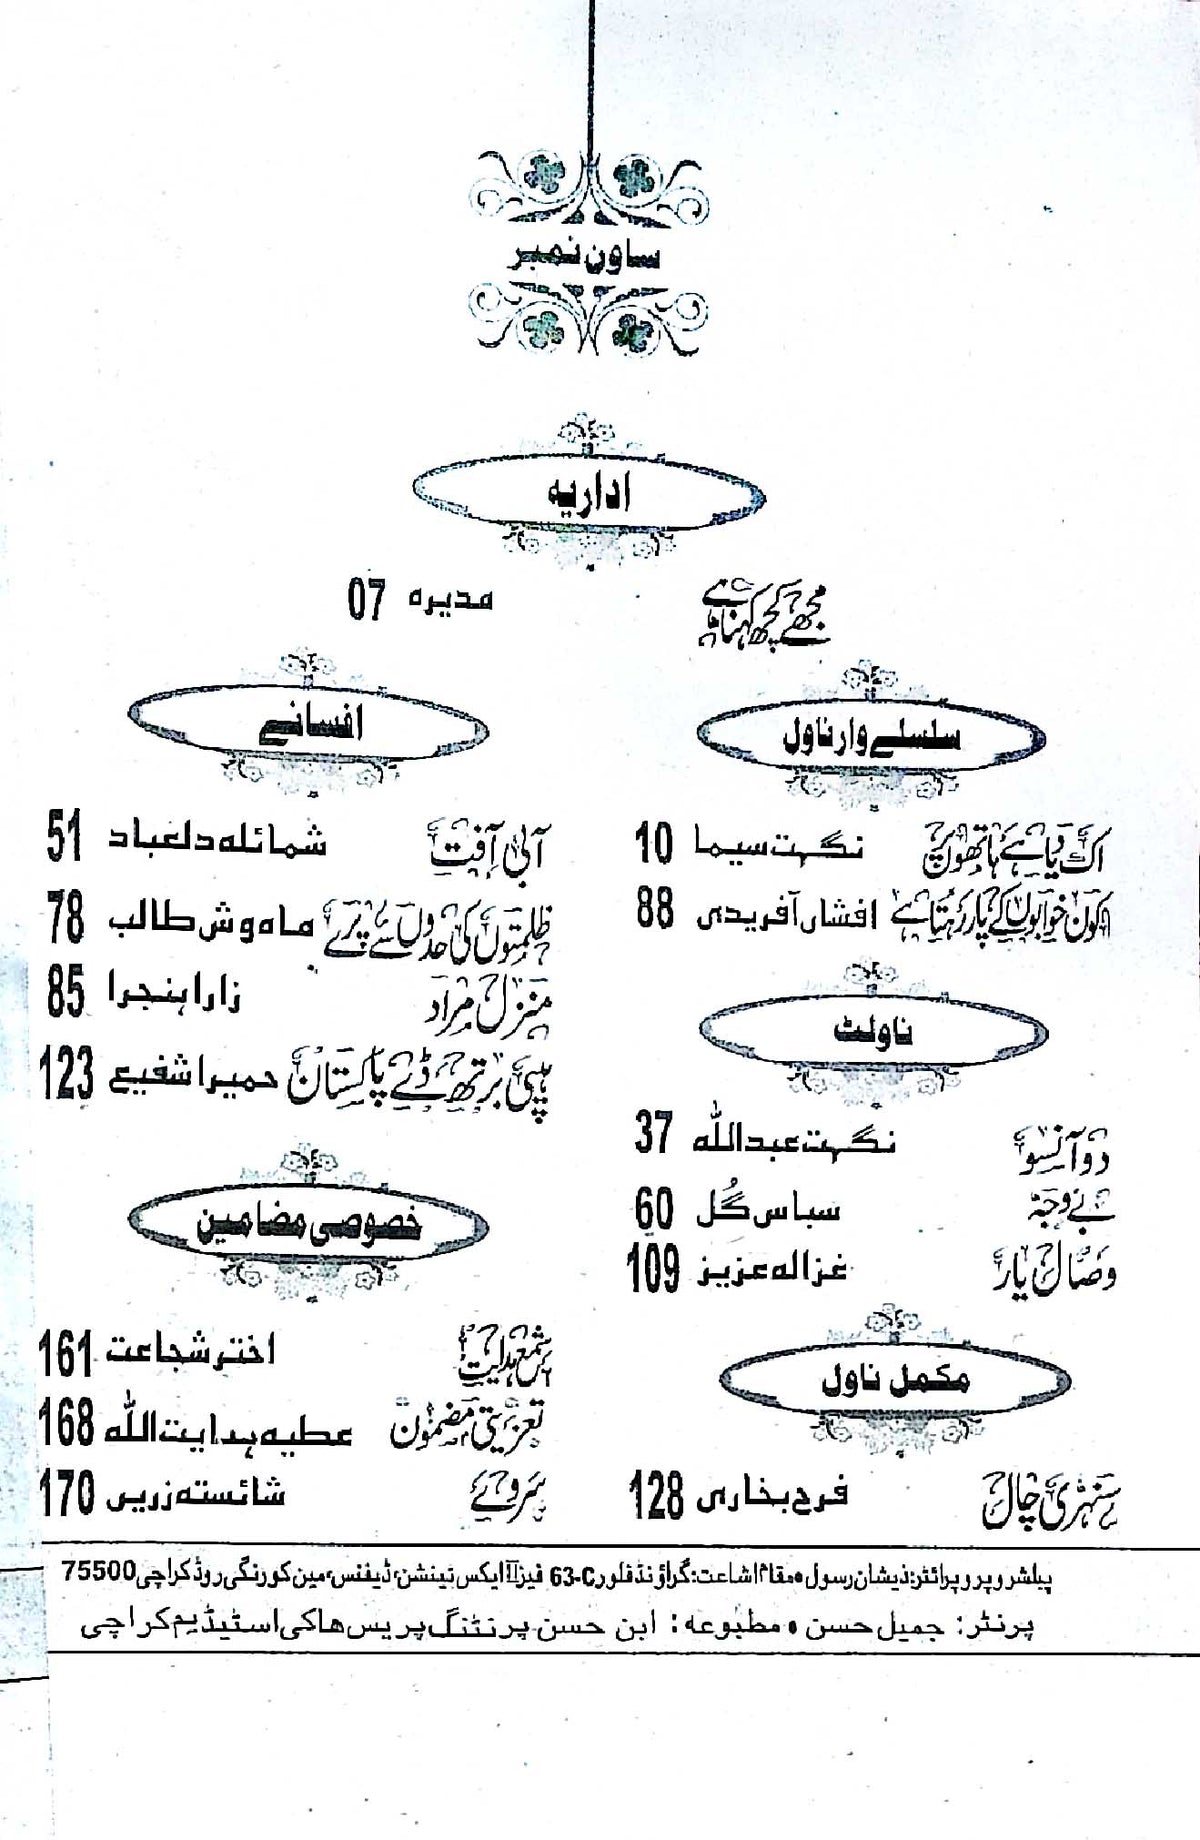 ساون نمبر
اداریہ
مجھے کچھ کہنا ہے مدیرہ 07
سلسلے وار ناول
اک دیا ہے ہاتھوں پہ نگہت سیما 10
کون خوابوں کے پار رہتا ہے افشاں آفریدی 88
ناولٹ
دو آنسو نگہت عبداللہ 37
بے وجہ سباس گُل 60
وصال یار غزالہ عزیز 109
مکمل ناول
سنہری جال فرح بخاری 128
افسانے
آئی آفت شمائلہ دلعباد 51
ظلمتوں کی حدوں سے پرے ماہ وش طالب 78
منزل مراد زارا ہنجرا 85
ہیپی برتھ ڈے پاکستان حمیرا شفیع 123
خصوصی مضامین
شمع ہدایت اختر شجاعت 161
تعزیتی مضمون عطیہ ہدایت اللہ 168
سروے شائستہ زریں 170
پبلشر و پروپرائٹر: ذیشان رسول • مقام اشاعت: گراؤنڈ فلور 63-C فیز II ایکس ٹینشن، ڈیفنس، مین کورنگی روڈ کراچی 75500
پرنٹر: جمیل حسن • مطبوعہ: ابن حسن پرنٹنگ پریس ہاکی اسٹیڈیم کراچی